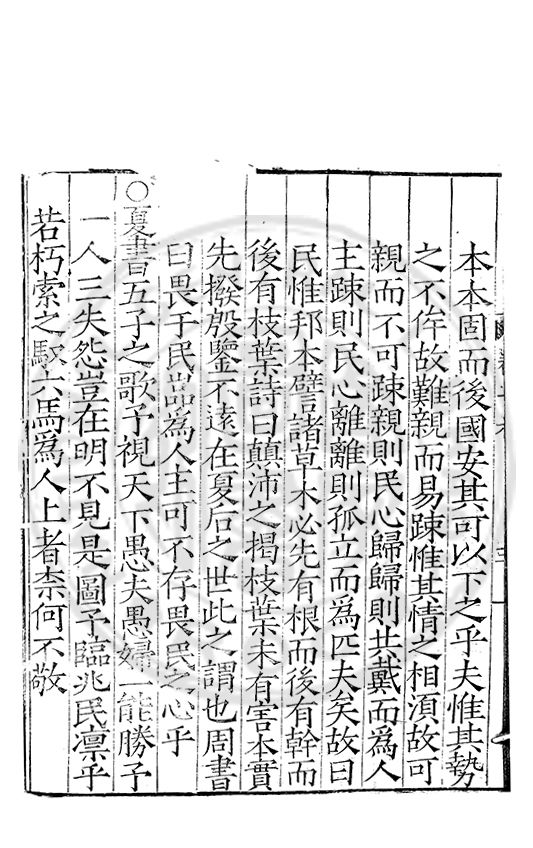 本本固而後國安其可以下之乎夫惟其勢
之不侔故難親而易踈惟其情之相湏故可
親而不可踈親則民心歸歸則共戴而為人
主踈則民心離離則孤立而為匹夫矣故曰
民惟邦本譬諸草木必先有根而後有幹而
後有枝葉詩曰顛沛之揭枝葉未有害本實
先撥殷鑒不遠在夏后之世此之謂也周書
曰畏于民嵒為人主可不存畏民之心乎
○夏書五子之歌予視天下愚夫愚婦一能勝予
一人三失怨豈在明不見是圖予臨兆民凛乎
若朽索之馭六馬為人上者柰何不敬